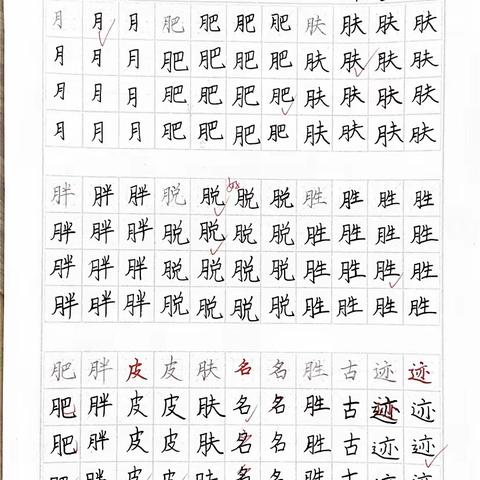 月月月肥肥肥肥肤肤肤肤
月月月肥肥肥肥肤肤肤肤
月月月肥肥肥肥肤肤肤肤
月月月肥肥肥肥肤肤肤肤
胖胖胖脱脱脱脱胜胜胜胜
胖胖胖脱脱脱脱胜胜胜胜
胖胖胖脱脱脱脱胜胜胜胜
胖胖胖脱脱脱脱胜胜胜胜
肥胖皮皮肤名名胜古迹迹
肥胖皮皮肤名名胜古迹迹
肥胖皮皮肤名名胜古迹迹
肥胖皮皮肤名名胜古迹迹